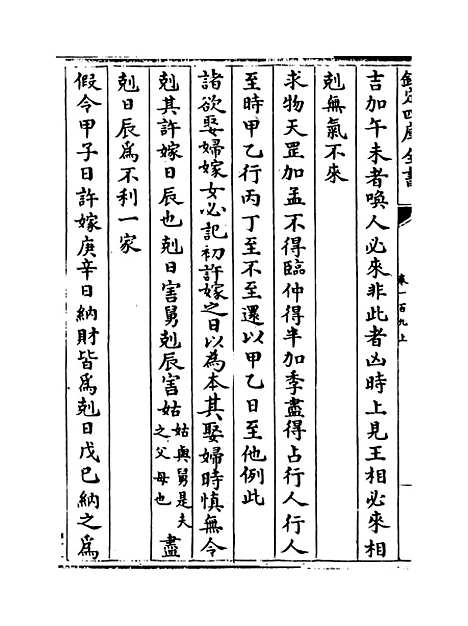 欽定四庫全書
卷一百九上
吉加午未者喚人必來非此者凶時上見王相必來相
剋無氣不來
求物天罡加孟不得臨仲得半加季盡得占行人行人
至時甲乙行丙丁至不至還以甲乙日至他例此
諸欲娶婦嫁女必記初許嫁之日以為本其娶婦時慎無令
剋其許嫁日辰也剋日害舅剋辰害姑姑與舅是夫之父母也盡
剋日辰為不利一家
假令甲子日許嫁庚辛日納財皆為剋日戊己納之為